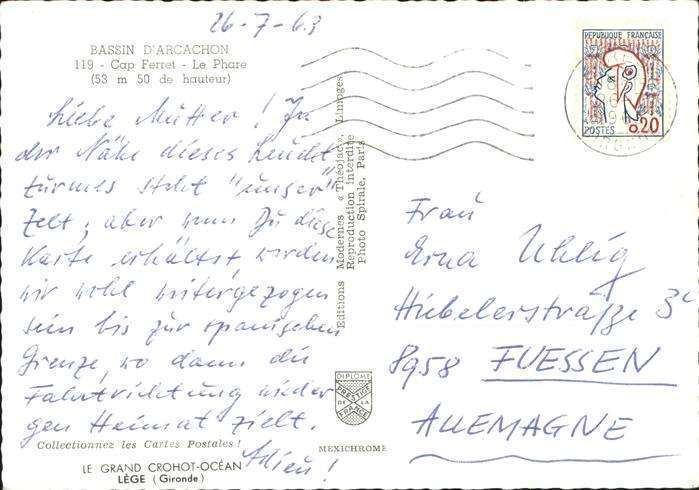 26-7-63
BASSIN D'ARCACHON
119 - Cap Ferret - Le Phare
(53 m 50 de hauteur)
Liebe Mutter! In
der Nähe dieses Leucht
turmes steht "unser"
Zelt, aber wenn Du diese
Karte erhältst werden
wir wohl weitergezogen
sein bis zur spanischen
Grenze, wo dann die
Fahrtrichtung wieder
gen Heimat zielt.
Adieu!
Collectionnez les Cartes Postales!
LE GRAND CROHOT-OCÉAN
LÈGE (Gironde)
Editions Modernes « Théojac », Limoges
Reproduction Interdite
Photo Spirale, Paris
DIPLOME
PRESTIGE
DE LA
FRANCE
MEXICHROME
REPUBLIQUE FRANÇAISE
POSTES 0.20
Frau
Erna Uhlig
Hiebelerstraße 3
8958 FUESSEN
ALLEMAGNE